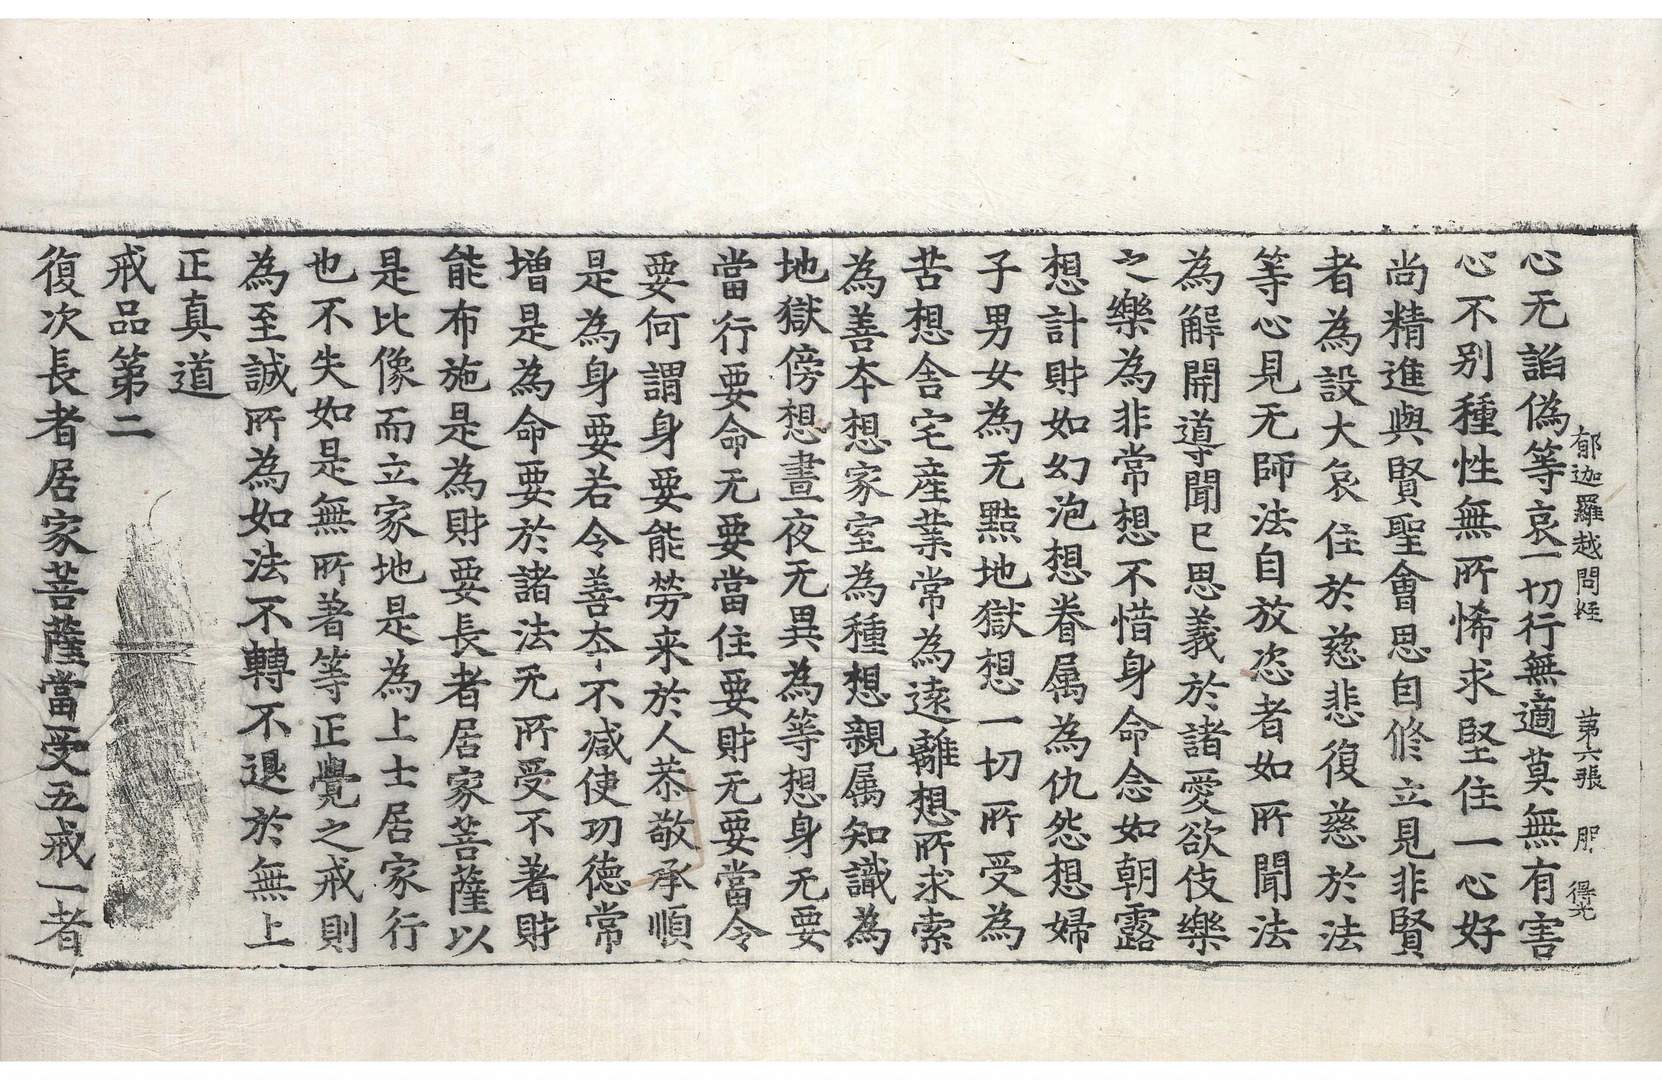 心无諂偽等哀一切行無適莫無有害
郁迦羅越問経　第六張　服　得光
心不別種性無所悕求堅住一心好
尚精進與賢聖會思自修立見非賢
者為設大哀住於慈悲復慈於法
等心見无師法自放恣者如所聞法
為解開導聞已思義於諸愛欲伎樂
之樂為非常想不惜身命念如朝露
想計財如幻泡想眷属為仇怨想婦
子男女為无黠地獄想一切所受為
苦想舎宅産業常為遠離想所求索
為善夲想家室為種想親属知識為
地獄傍想晝夜无異為等想身无要
當行要命无要當住要財无要當令
要何謂身要能勞来於人恭敬承順
是為身要若令善夲不減使功徳常
増是為命要於諸法无所受不著財
能布施是為財要長者居家菩薩以
是比像而立家地是為上士居家行
也不失如是無所著等正覺之戒則
為至誠所為如法不轉不退於無上
正真道
戒品第二
復次長者居家菩薩當受五戒一者